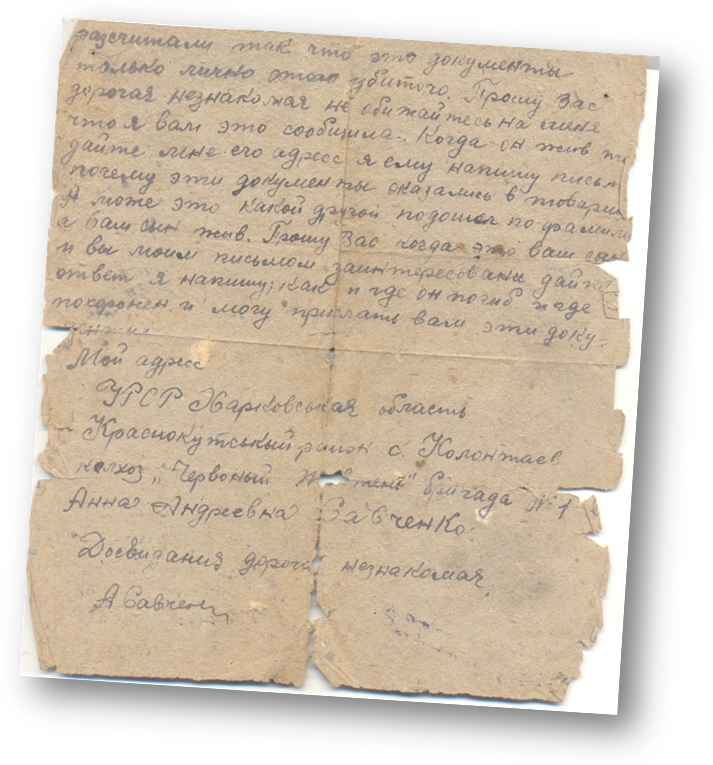 разсчитали так что это документы
только лично этого убитого. Прошу Вас
дорогая незнакомая не обижайтесь на меня
что я вам это сообщила. Когда он жив то
дайте мне его адресс я ему напишу письм
почему эти документы оказались в товарищ
А може это какой другой подошол по фамили
а вам сын жив. Прошу Вас когда это ваш сын
и вы моим письмом заинтересованы дайте
ответ я напишу; как и где он погиб и где
похоронен и могу прислать вам эти доку-
Мой адресс
УРСР Харковськая область
Краснокутський район с. Колонтаев
колхоз „Червоный Жовтень" бригада №1
Анна Андреевна Савченко.
Досвидания дорога незнакомая.
АСавченк